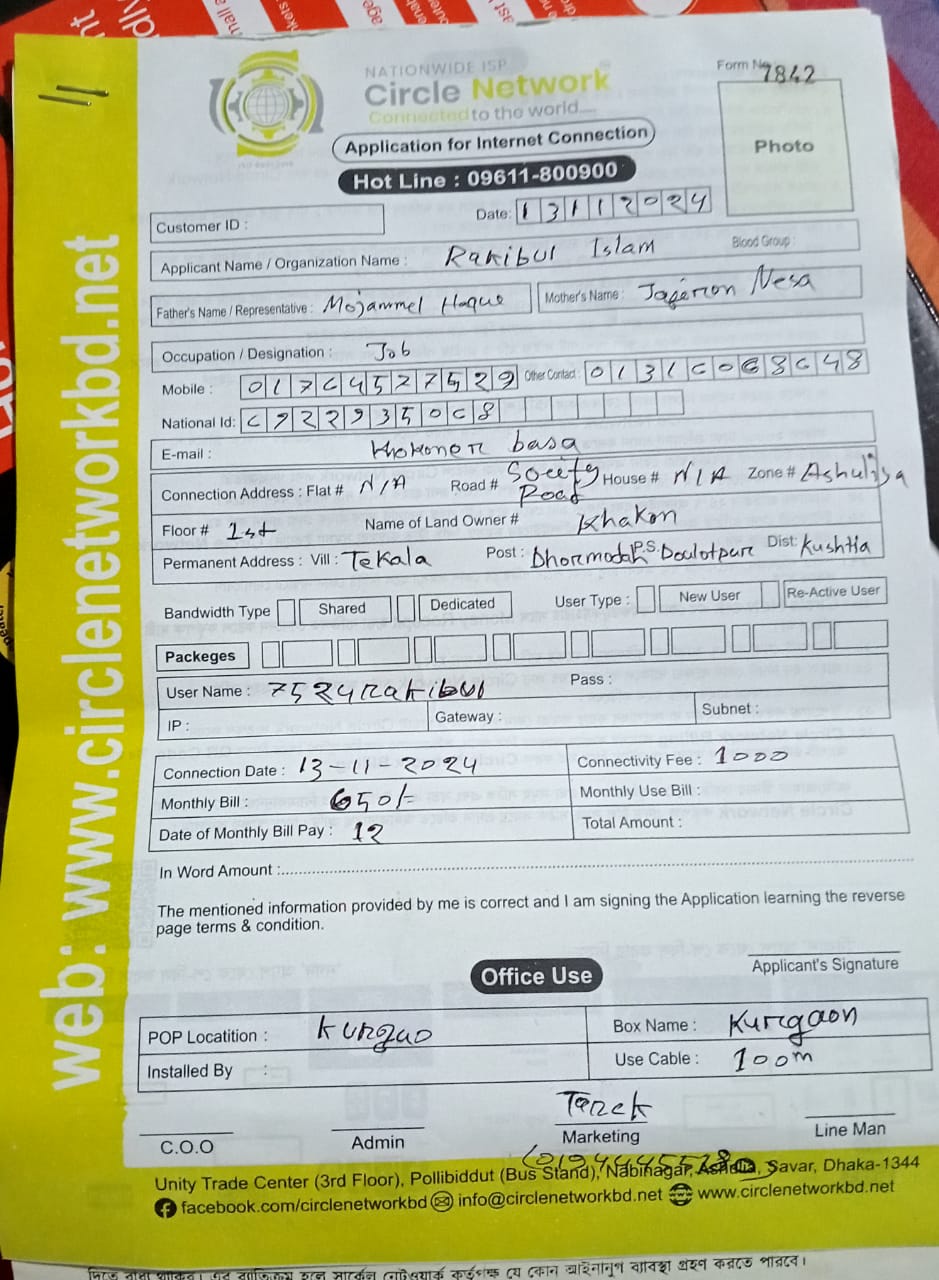 NATIONWIDE ISP
Circle Network
Connected to the world....
Form No 7842
Photo
Application for Internet Connection
Hot Line : 09611-800900
Customer ID :
Date: 13112024
Applicant Name / Organization Name : Rakibul Islam Blood Group :
Father's Name / Representative : Mojammel Haque Mother's Name : Nesa
Occupation / Designation : Job
Mobile : Other Contact :
National Id:
E-mail : basa
Connection Address : Flat # N/A Road # Road House # N/A Zone # Ashuliya
Floor # 1st Name of Land Owner # Khakon
Permanent Address : Vill : Tekala Post : P.S. Doulotpur Dist: Kushtia
Bandwidth Type Shared Dedicated User Type : New User Re-Active User
Packeges
User Name : 7524rakibul Pass :
IP : Gateway : Subnet :
Connection Date : 13-11-2024 Connectivity Fee : 1000
Monthly Bill : 650/= Monthly Use Bill :
Date of Monthly Bill Pay : 12 Total Amount :
In Word Amount :
The mentioned information provided by me is correct and I am signing the Application learning the reverse
page terms & condition.
Applicant's Signature
Office Use
POP Locatition : Box Name : Kurgaon
Installed By : Use Cable : 100m
Tarek
C.O.O Admin Marketing Line Man
Unity Trade Center (3rd Floor), Pollibiddut (Bus Stand), Nabinagar, Ashulia, Savar, Dhaka-1344
facebook.com/circlenetworkbd info@circlenetworkbd.net www.circlenetworkbd.net
web: www.circlenetworkbd.net
যে কোন আইনানুগ ব্যবস্থা গ্রহণ করতে পারবে।